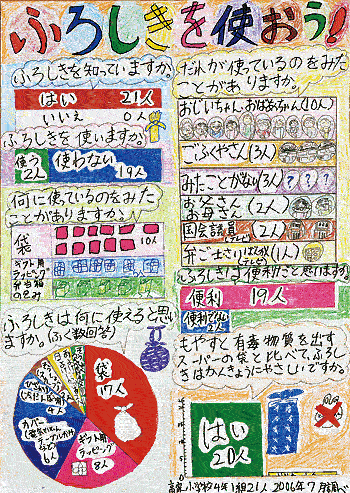 ふろしきを使おう!
ふろしきを知っていますか。
はい 21人
いいえ 0人
ふろしきを使いますか。
使う 2人
使わない 19人
何に使っているのをみた
ことがありますか。
袋
10人
ギフト用
ラッピング
弁当箱
のつつみ
ふろしきは何に使えると思い
ますか。(ふく数回答)
袋
17人
ギフト用
ラッピング
8人
カバー
6人
4人
だれが使っているのをみた
ことがありますか。
おじいちゃん、おばあちゃん(10人)
ごふくやさん(3人)
みたことがない(3人)???
お母さん(2人)
国会議員(2人)
テレビ
弁ごしさん(1人)
ふろしきは便利だと思いますか。
便利 19人
便利でない
2人
もやすと有毒物質を出す
スーパーの袋と比べて、ふろし
きはかんきょうにやさしいですか。
はい
20人
小学校4年1組21人 2006年7月調べ